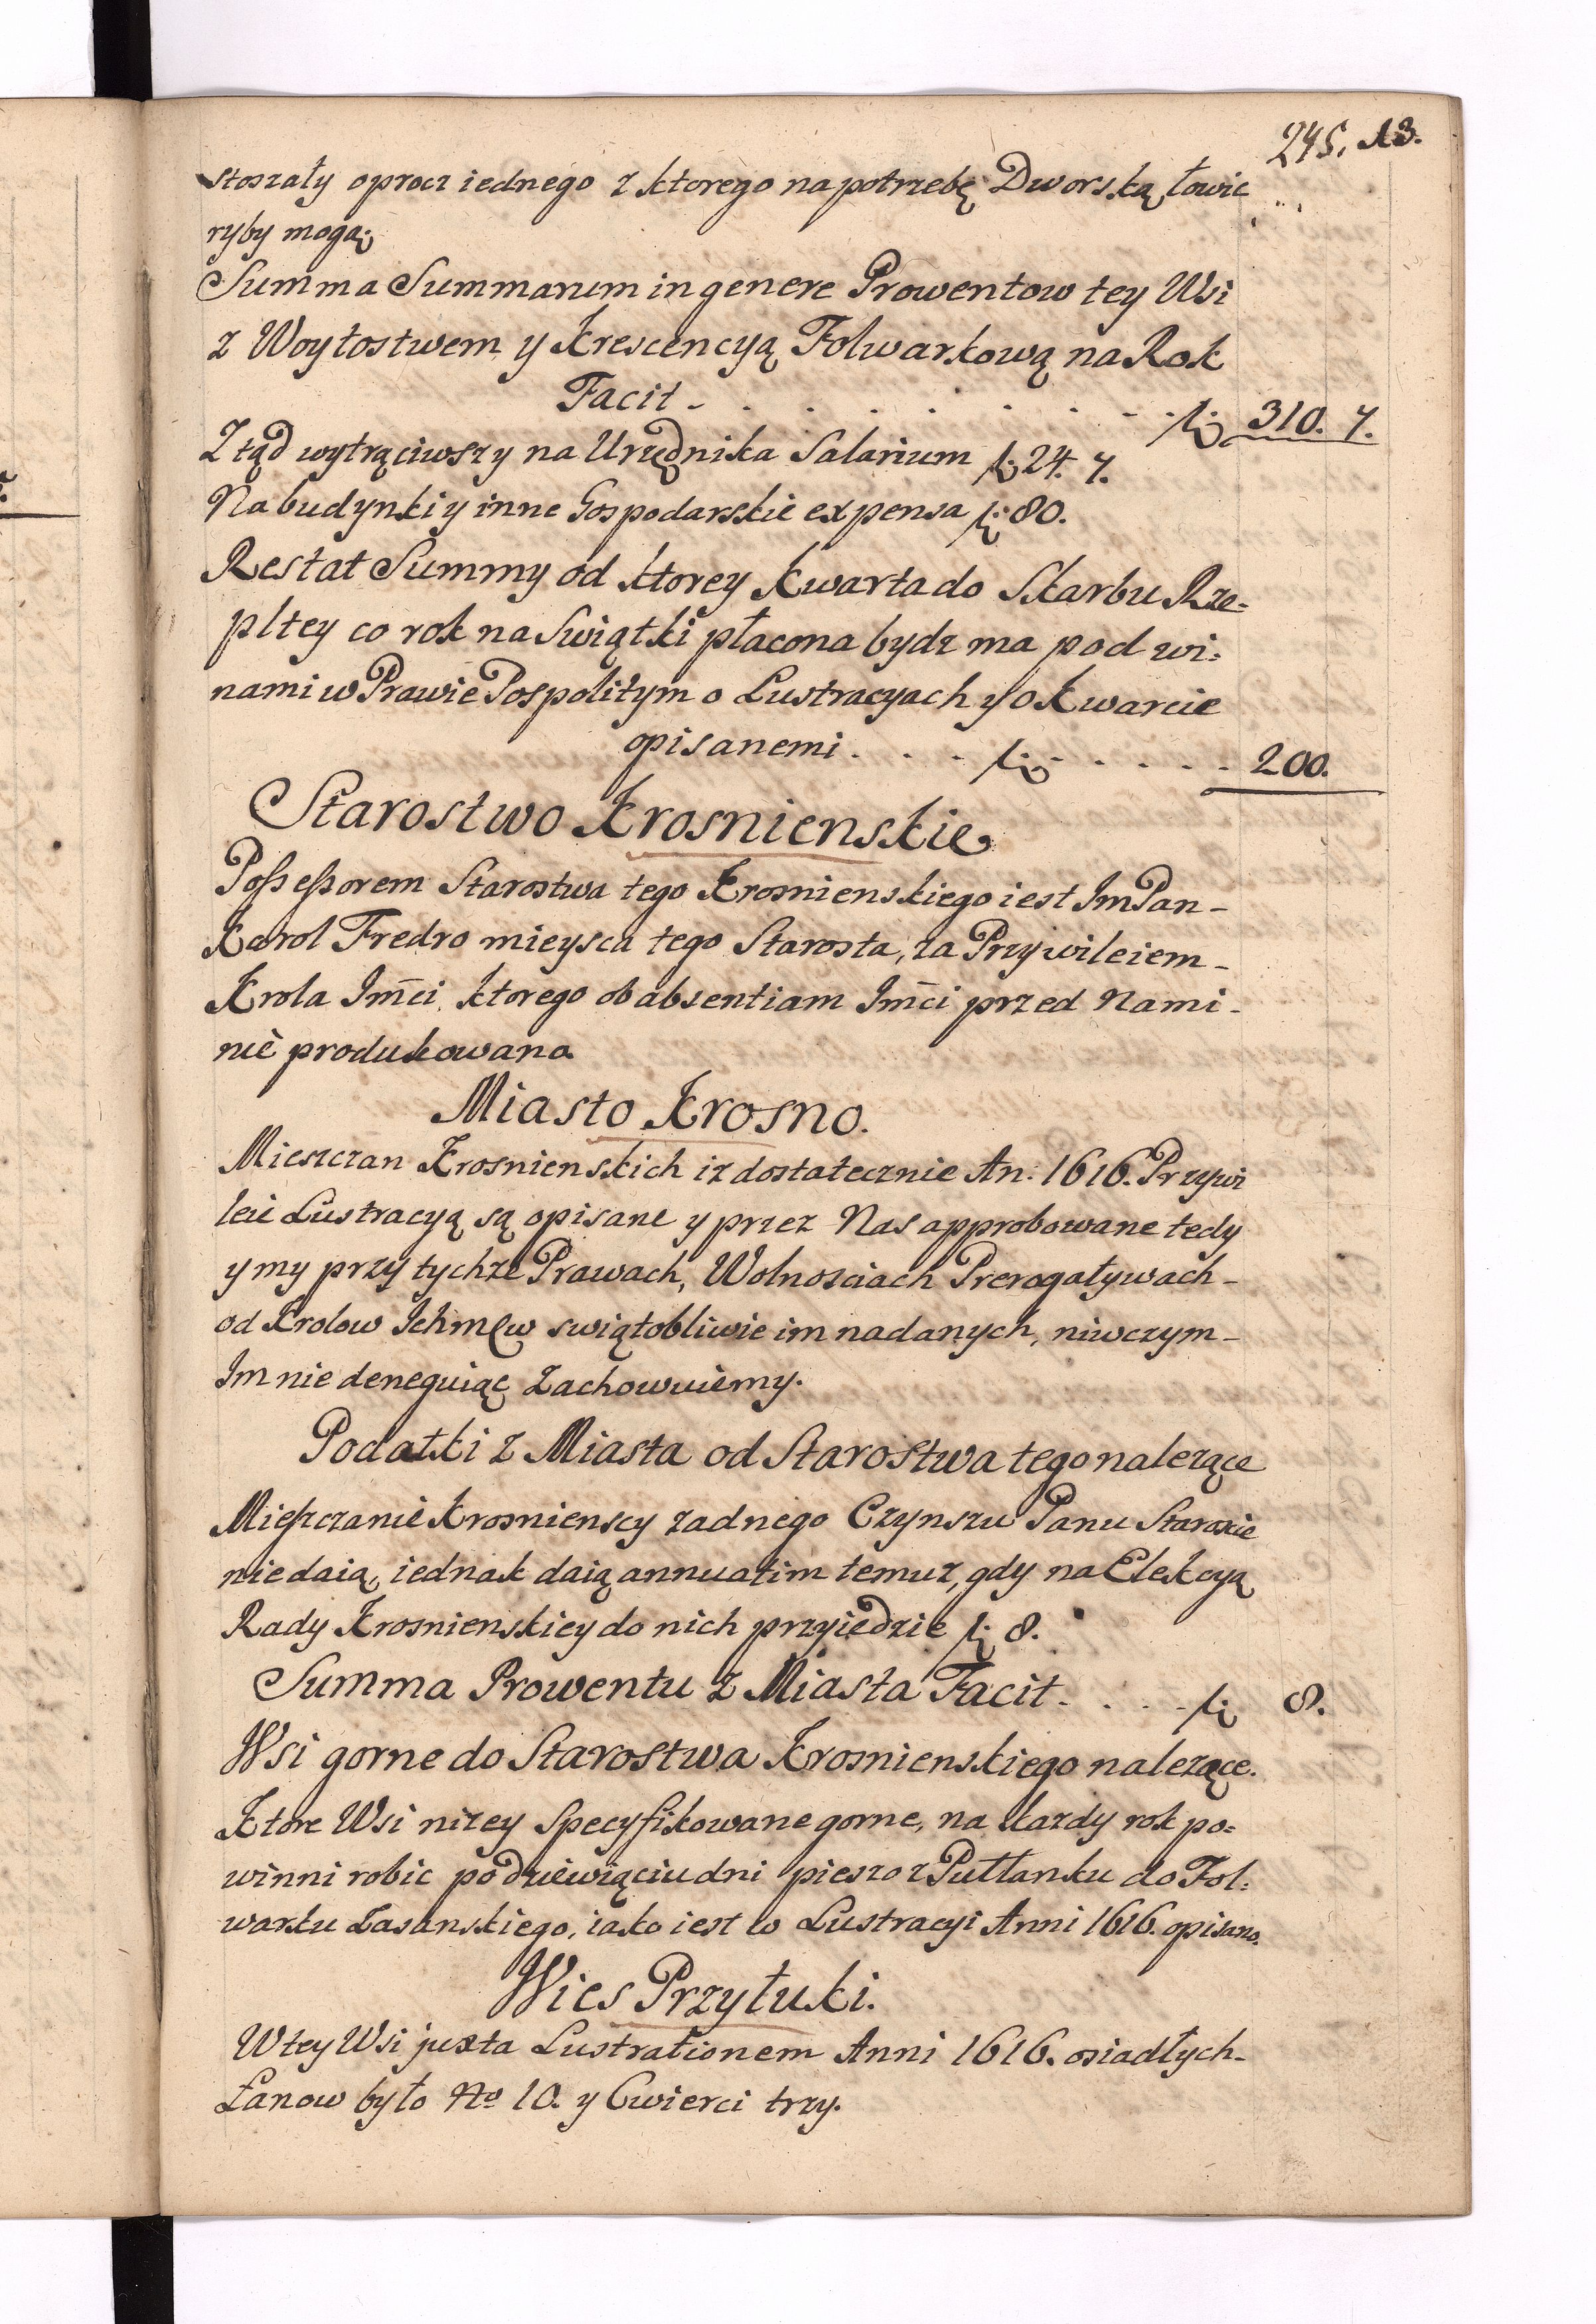 245. 13.
stoszały oprocz iednego z ktorego na potrzebę Dworską łowic
ryby mogą.
Summa Summarum in genere Prowentow tey Wsi
z Woytostwem y Krescencyą Folwarkową na Rok
Facit - . . . . . . . - - 310. 7.
Ztąd wytrąciwszy na Urzędnika Salarium 24. 7.
Na budynki y inne Gospodarskie expensa 80.
Restat Summy od ktorey Kwarta do Skarbu Rze-
pltey co rok na Swiątki płacona bydz ma pod wi-
nami w Prawie Pospolitym o Lustracyach y o Kwarcie
opisanemi . . . . . . . . 200.
Starostwo Krosnienskie
Possessorem Starostwa tego Krosnienskiego iest ImPan-
Karol Fredro mieysca tego Starosta, za Przywileiem-
Krola Imci, ktorego ob absentiam Imci przed Nami-
nie produkowana
Miasto Krosno.
Mieszczan Krosnienskich iz dostatecznie An: 1616. Przywi
leie Lustracyą są opisane y przez Nas approbowane tedy
y my przy tychze Prawach, Wolnosciach Prerogatywach-
od Krolow Ichmw swiątobliwie im nadanych, niwczym-
Im nie deneguiąc zachowuiemy.
Podatki z Miasta od Starostwa tego nalezące
Mieszczanie Krosnienscy zadnego Czynszu Panu Staroscie
nie daią, iednak daią annuatim temuz, gdy na Elekcyą
Rady Krosnienskiey do nich przyiedzie 8.
Summa Prowentu z Miasta Facit - . . - 8.
Wsi gorne do Starostwa Krosnienskiego nalezące.
Ktore Wsi nizey Specyfikowane gorne, na kazdy rok po-
winni robic po dziewiąciu dni pieszo z Putłanku do Fol-
warku Lasanskiego, iako iest w Lustracyi Anni 1616. opisano.
Wies Przytuki.
W tey Wsi juxta Lustrationem Anni 1616. osiadłych-
Łanow było No 10. y Cwierci trzy.